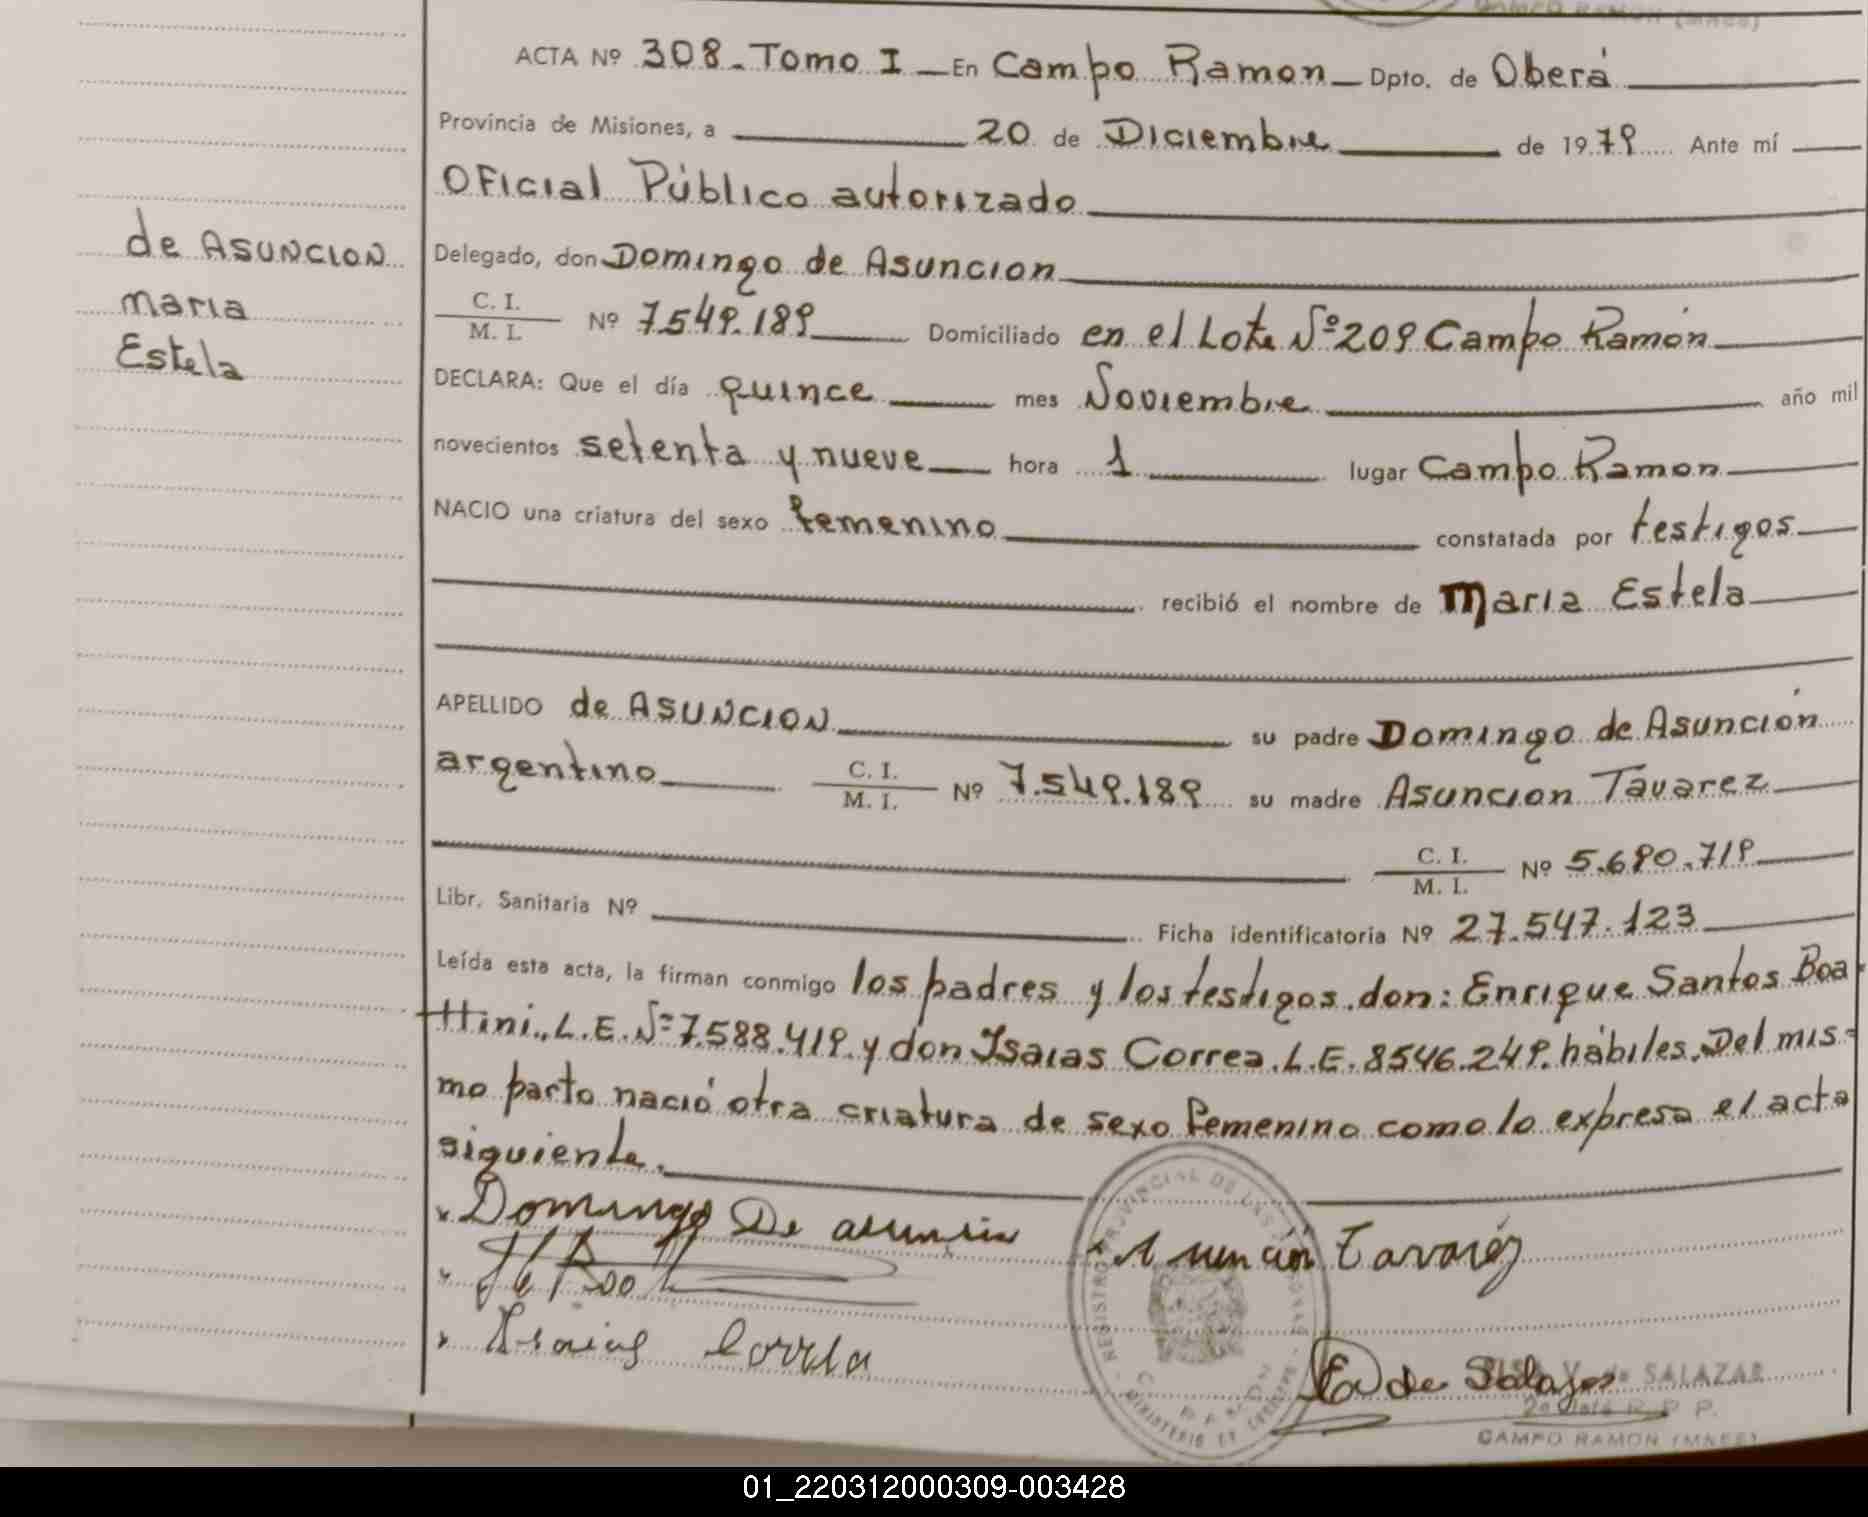 CAMPO RAMON (MNES)
ACTA Nº 308 - Tomo I — En Campo Ramon — Dpto. de Oberá
Provincia de Misiones, a 20 de Diciembre de 1979 Ante mí
Oficial Público autorizado
de ASUNCION
Maria
Estela
Delegado, don Domingo de Asuncion
C. I.
M. I. Nº 7.549.189 Domiciliado en el Lote Nº 209 Campo Ramón
DECLARA: Que el día quince mes Noviembre año mil
novecientos setenta y nueve hora 1 lugar Campo Ramon
NACIO una criatura del sexo femenino constatada por testigos
recibió el nombre de Maria Estela
APELLIDO de ASUNCION su padre Domingo de Asunción
argentino C. I.
M. I. Nº 7.549.189 su madre Asuncion Tavarez
C. I.
M. I. Nº 5.690.719
Libr. Sanitaria Nº Ficha identificatoria Nº 27.547.123
Leída esta acta, la firman conmigo los padres y los testigos. don: Enrique Santos Boa-
ttini., L.E. Nº 7.588.419. y don Isaias Correa. L.E. 8546.249. hábiles. Del mis-
mo parto nació otra criatura de sexo femenino como lo expresa el acta
siguiente.
Domingo De asuncin
Asunción Tavaréz
Isaias Correa
REGISTRO PROVINCIAL DE LAS PERSONAS
MINISTERIO DE GOBIERNO
E V de Salazar
V. de SALAZAR
R. P. P.
CAMPO RAMON (MNES)
01_220312000309-003428